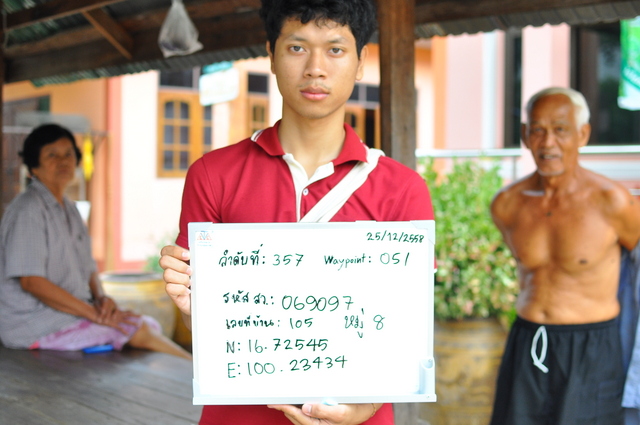 25/12/2558
ลำดับที่: 357 Waypoint: 051
รหัส สว. : 069097
เลขที่บ้าน: 105 หมู่ 8
N: 16.72545
E: 100.23434